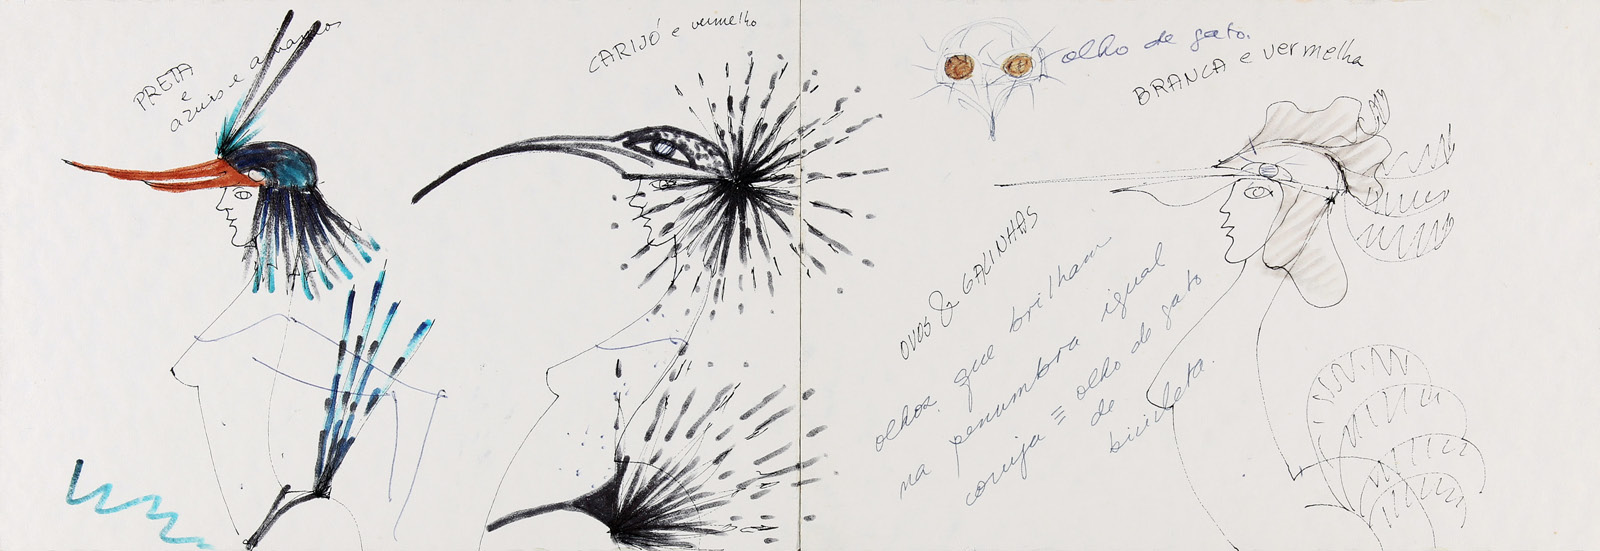 PRETA
e
azuis e amarelos
CARIJÓ e vermelho
olho de gato.
BRANCA e vermelha
OVOS & GALINHAS
olhos que brilham
na penumbra igual
coruja = olho de gato
de
bicicleta.